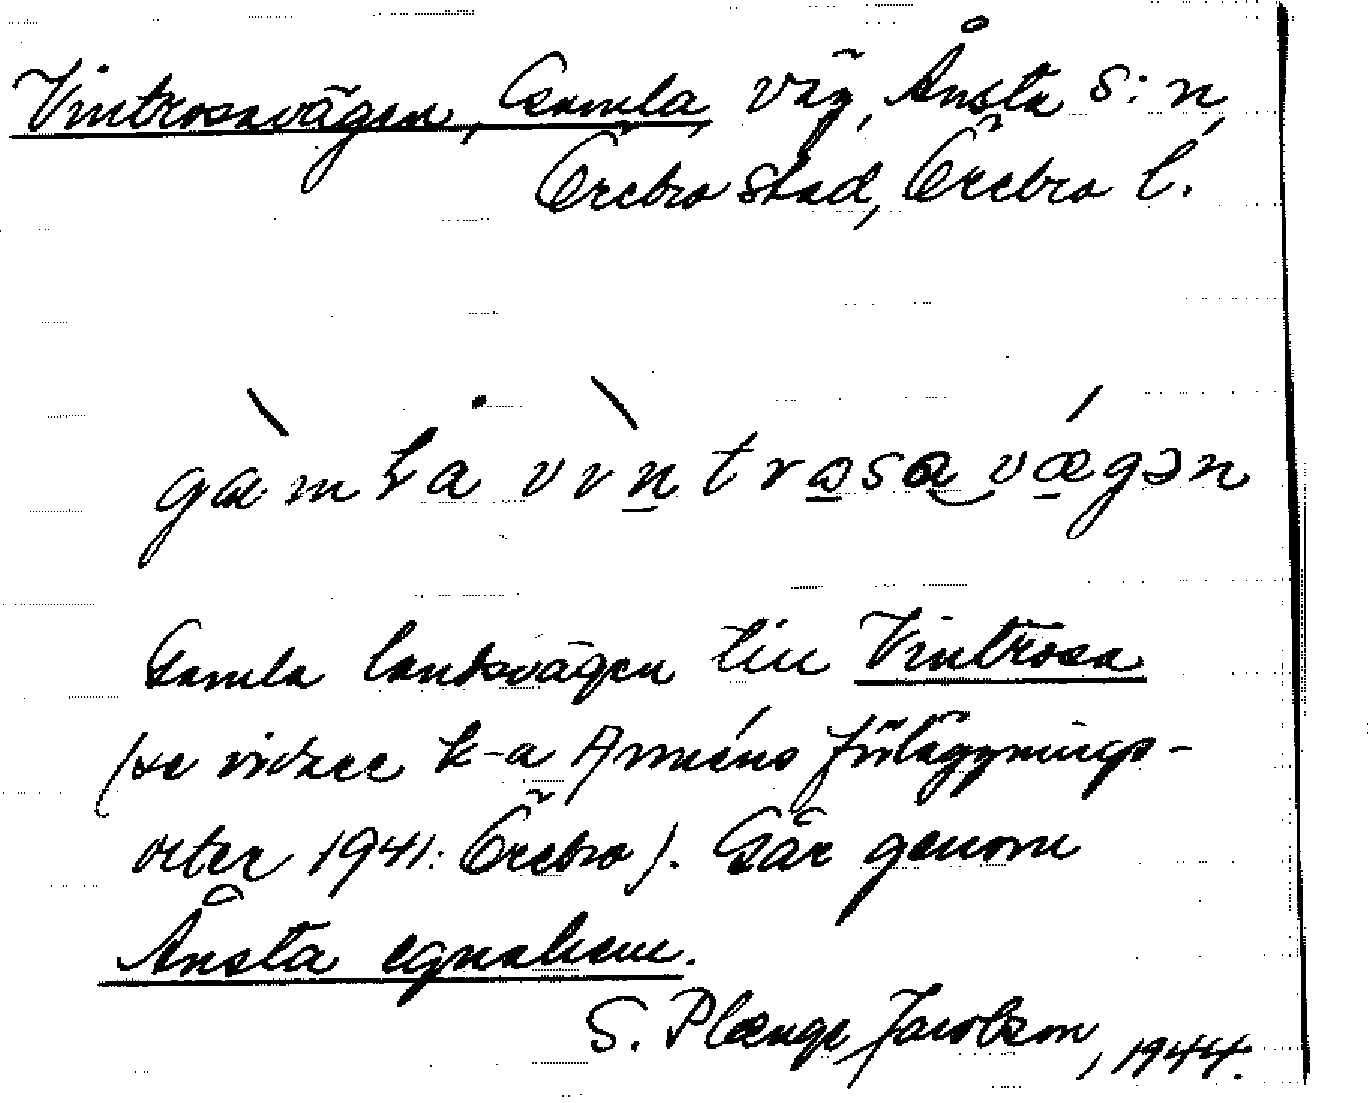 Vintrosavägen, Gamla, väg, Ånsta s:n,
Örebro stad, Örebro l.
gamla vintrosavægən
Gamla landsvägen till Vintrosa
(se vidare k-a Arméns förläggnings-
orter 1941: Örebro). Går genom
Ånsta egnahem.
S. Plænge Jacobson, 1944.